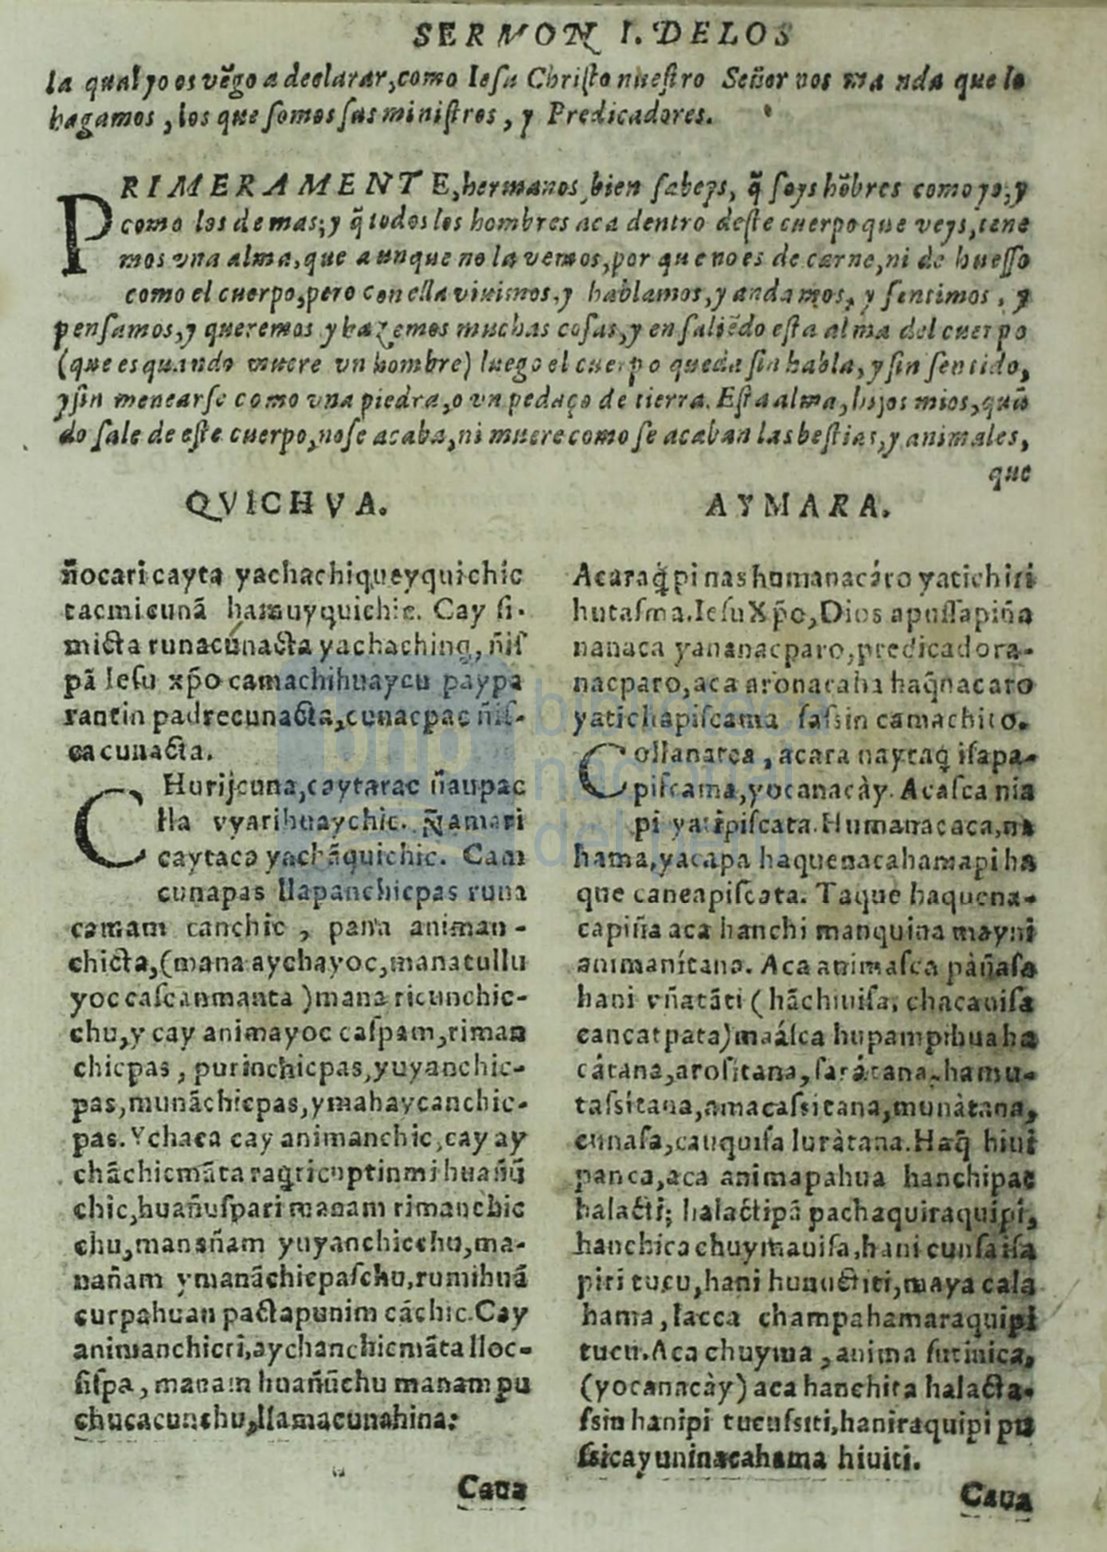 SERMON I. DELOS
la qual yo os vẽgo a declarar, como Iesu Christo nuestro Señor nos ma nda que lo
hagamos, los que somos sus ministros, y Predicadores.
PRIMERAMENTE, hermanos bien sabeys, q̃ soys hõbres como yo, y
como los demas; y q̃ todos los hombres aca dentro deste cuerpo que veys, tene
mos vna alma, que aunque no la vemos, por que no es de carne, ni de huesso
como el cuerpo, pero con ella viuimos, y hablamos, y andamos, y sentimos, y
pensamos, y queremos y hazemos muchas cosas, y en saliẽdo esta alma del cuerpo
(que es quando muere vn hombre) luego el cuerpo queda sin habla, y sin sentido,
y sin menearse como vna piedra, o vn pedaço de tierra. Esta alma, hijos mios, quã
do sale de este cuerpo, no se acaba, ni muere como se acaban las bestias, y animales,
que
QVICHVA.
ñocari cayta yachachiqueyquichic
tacmicunã hamuyquichic. Cay si-
micta runacunacta yachaching, ñis
pã Iesu xp̃o camachihuaycu paypa
rantin padrecunacta, cunacpac ñis-
cacunacta.
CHurijcuna, caytarac ñaupac
lla vyarihuaychic. Ñamari
caytaca yachãquichic. Cam
cunapas llapanchicpas runa
camam canchic, pana animan-
chicta, (mana aychayoc, manatullu
yoc cascanmanta) mana ricunchic-
chu, y cay animayoc caspam, riman
chicpas, purinchicpas, yuyanchic-
pas, munãchicpas, ymahaycanchic-
pas. Ychaca cay animanchic, cay ay
chãchicmãta raqricuptinmi huañũ
chic, huañuspari manam rimanchic
chu, manañam yuyanchicchu, ma-
nañam ymanãchicpaschu, rumihuã
curpahuan pactapunim cãchic. Cay
animanchicri, aychanchicmãta lloc-
sispa, manam huañũchu manam pu
chucacunchu, llamacunahina:
Caua
AYMARA.
Acaraq̃pi nas humanacáro yatichiri
hutasma. Iesu Xp̃o, Dios apussapiña
nanaca yananacparo, predicadora-
nacparo, aca aronacaha haq̃nacaro
yatichapiscama sassin camachito.
COllanarca, acara nayraq̃ isapa-
piscama, yocanacày. Acasca nia
pi yatipiscata. Humanacaca, na
hama, yacapa haquenacahamapi ha
que cancapiscata. Taque haquena-
capiña aca hanchi manquina mayni
animanítana. Aca animasca pàñasa
hani vñatãti (hãchiuisa, chacauisa
cancatpata) maásca hupampihua ha
cátana, arositana, sarátana, hamu-
tassitana, amacassitana, munàtana,
cunasa, cauquisa luràtana. Haq̃ hiui
panca, aca animapahua hanchipac
halacti; halactipã pachaquiraquipi,
hanchica chuymauisa, hani cunsa isa
piri tucu, hani hunuctiti, maya cala
hama, lacca champahamaraquipi
tucu. Aca chuyma, anima sutinica,
(yocanacày) aca hanchita halacta-
ssin hanipi tucussiti, haniraquipi pu
ssicayuninacahama hiuiti.
Caua